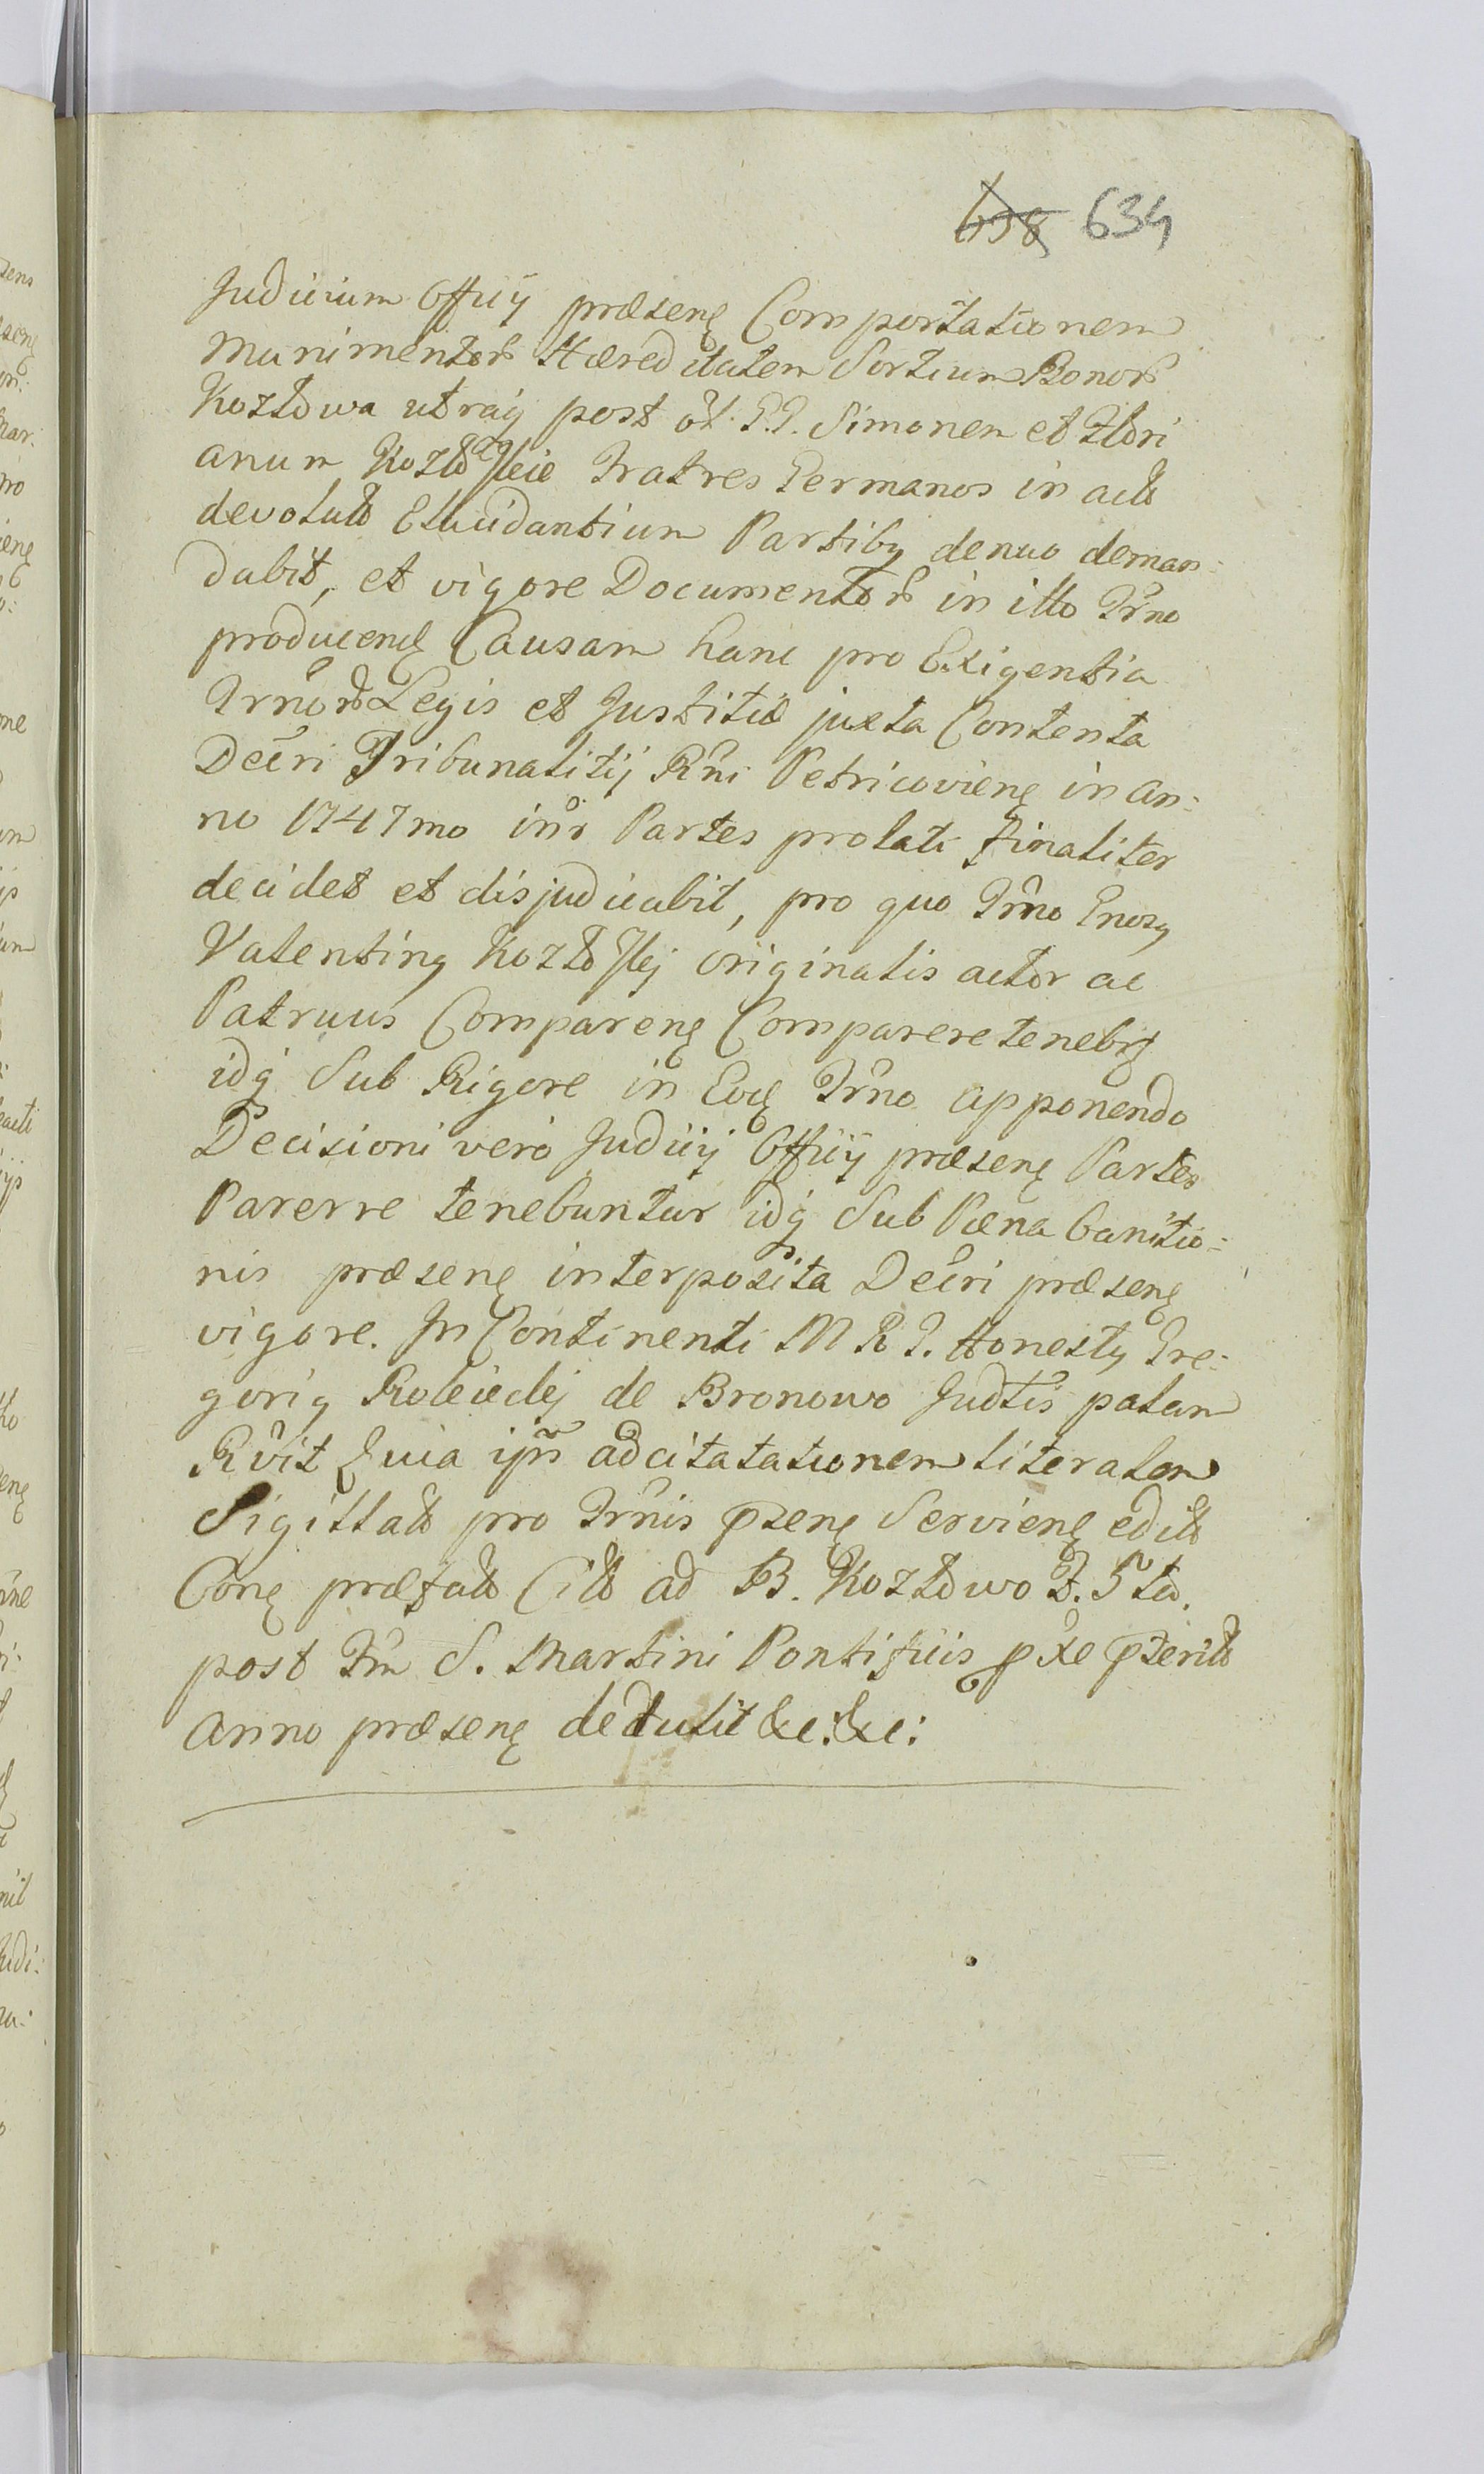 638 634
Judicium Officij præsenς Comportationem
Munimentor Hæreditatem Sortium Bonor
Kozłowa utraqꝫ post ol. G.G. Simonem et Flori
anum Kozłoscie Fratres Germanos in actt
devolutt Elucidantium Partibꝫ denuo deman:
dabit, et vigore Documentor in illo Trno
producenς Causam hanc pro Exigentia
Trnor Legis et Justitiæ juxta Contenta
Decri Tribunalitij Rni Petricovienς in an:
no 1747mo inr Partes prolati Finaliter
decidet et disjudicabit, pro quo Trno Gnosꝫ
Valentinꝫ Kozłosski originalis actor ac
Patruus Comparenς Comparere tenebr
idqꝫ Sub Rigore in Eoς Trno apponendo
Decisioni vero Judicij Officij præsenς Partes
Parerre tenebuntur idqꝫ Sub Pæna banitio:
nis præsenς interposita Decri præsenς
vigore. In Continenti M R G. Honestꝫ Gre:
goriꝫ de Bronowo Judtis palam
Rvit Quia ipn ad citatationem literalem
Sigillatt pro Trnis pzenς Servienς editt
Conς præfatt Citt ad B. Kozłowo F. 5ta.
post Fm S. Martini Pontificis pxe pterittt
Anno præsenς detulit &c: &c: